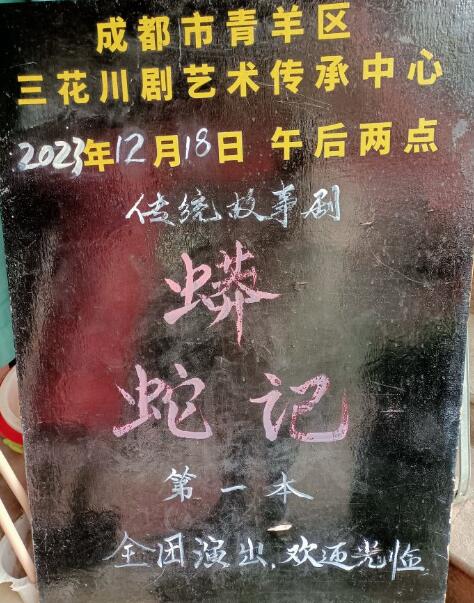 成都市青羊区
三花川剧艺术传承中心
2023年12月18日 午后两点
传统故事剧
蟒
蛇记
第一本
全团演出,欢迎光临